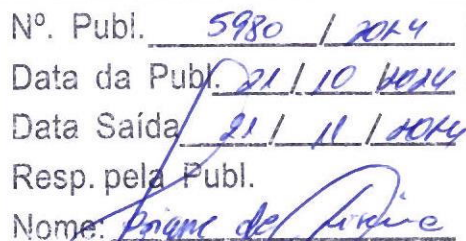 Nº. Publ. 5980 / 2024
Data da Publ. 21 / 10 / 2024
Data Saída 21 / 11 / 2024
Resp. pela Publ.
Nome: de